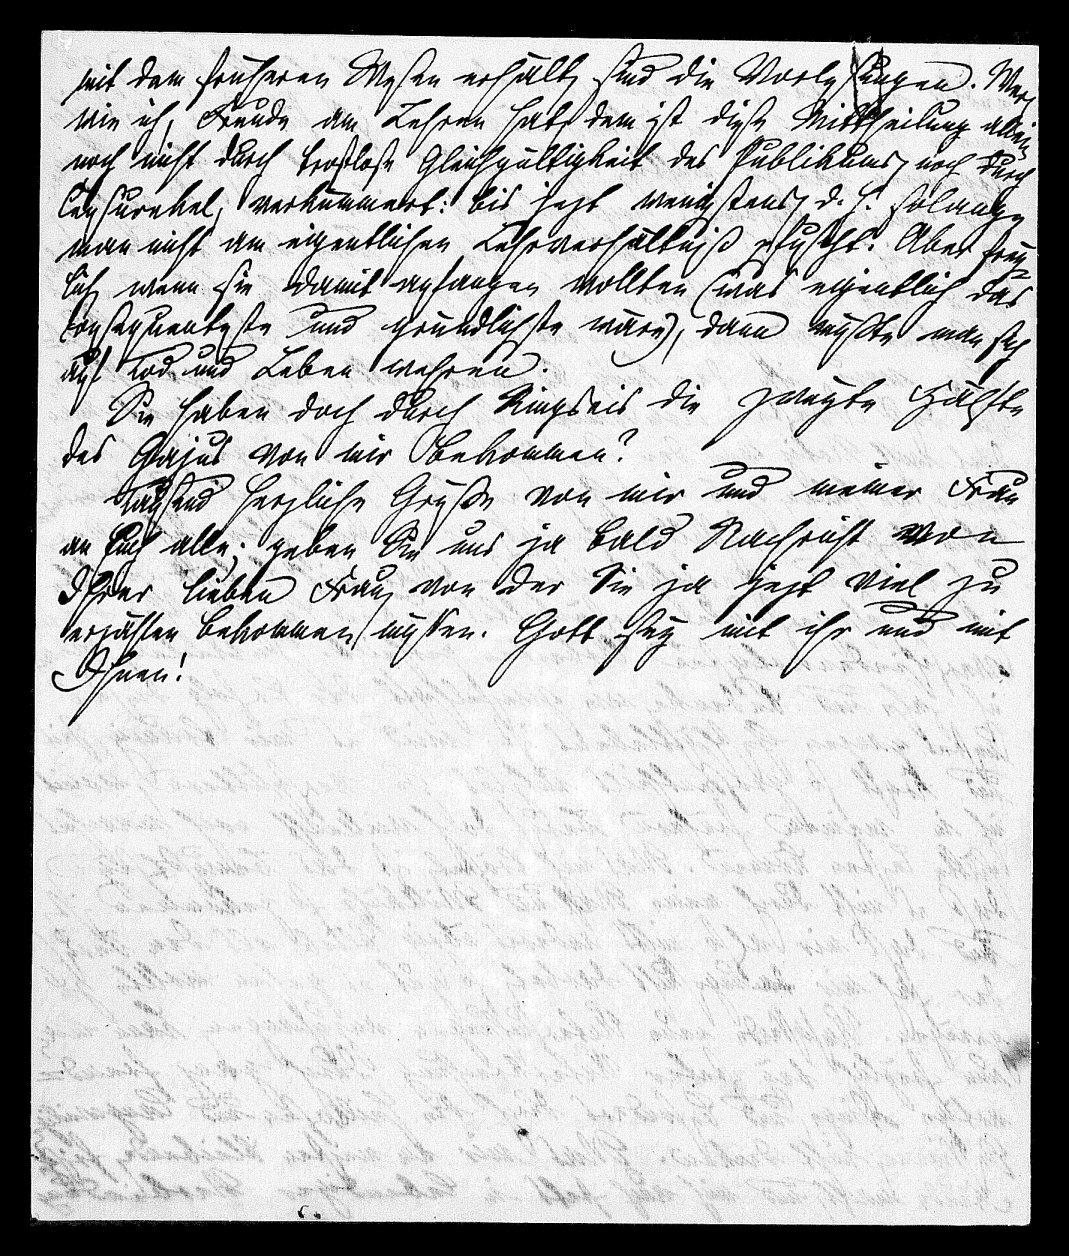 mit dem früheren Wesen erhält, sind die Vorlesungen. Wer,
wie ich, Freude am Lehren hat, dem ist diese Mittheilung allein
noch nicht durch trostlose Gleichgültigkeit des Publikums, noch durch
Censurekel, verkümmert: bis jezt wenigstens, d. h. solange
man nicht am eigentlichen Lehrverhältniß pfuscht. Aber frey=
lich wenn sie damit anfangen wollten (was eigentlich das
consequenteste und gründlichste wäre), dann müßte man sich
auf Tod und Leben wehren.
Sie haben doch durch Ringseis die zweyte Hälfte
des Gajus von mir bekommen?
Tausend herzliche Grüße von mir und meiner Frau
an Euch alle; geben Sie uns ja bald Nachricht von
Ihrer lieben Frau, von der Sie ja jezt viel zu
erzählen bekommen müssen. Gott sey mit ihr und mit
Ihnen!